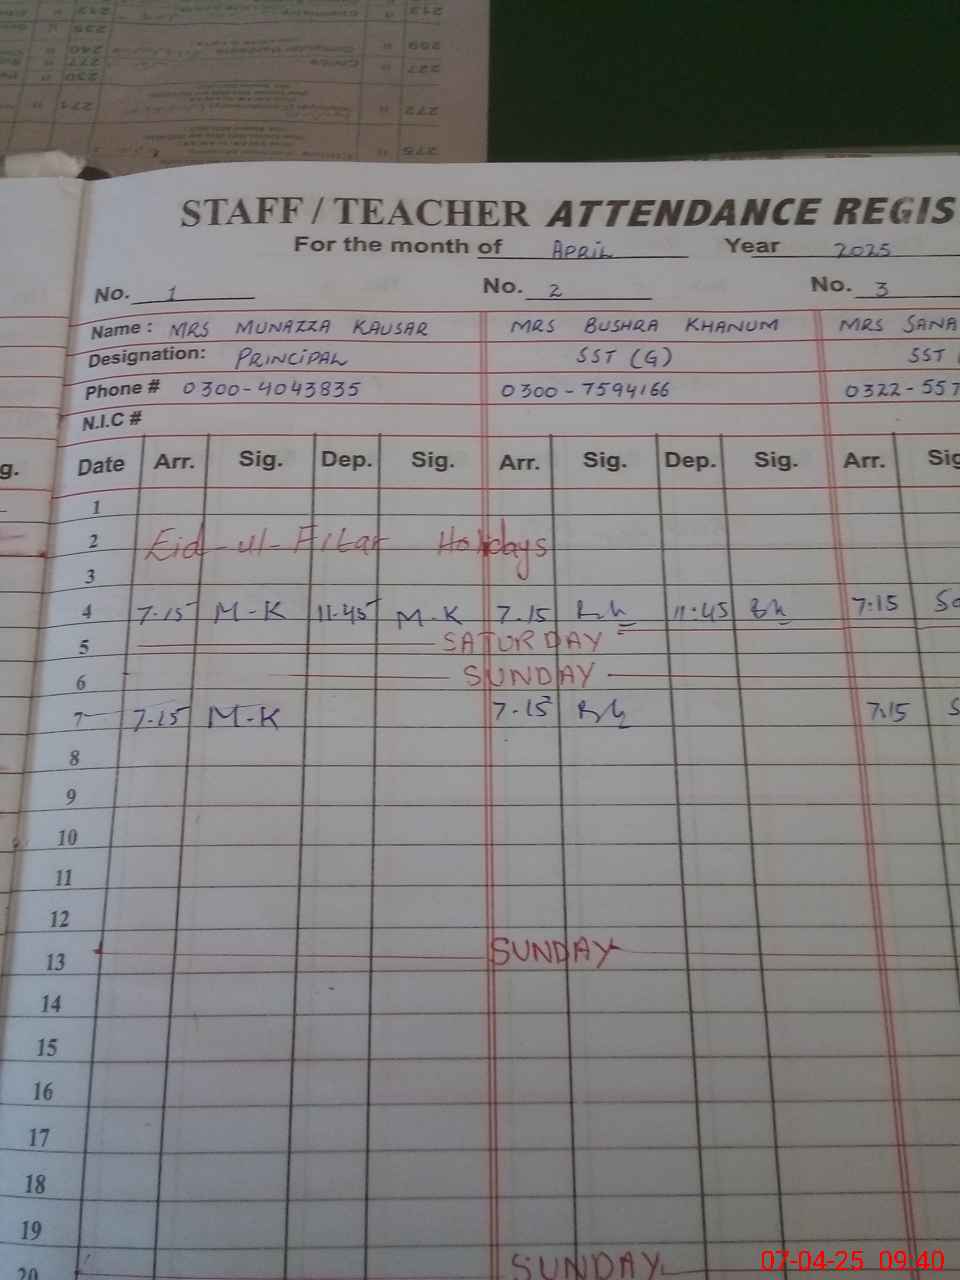 STAFF / TEACHER ATTENDANCE REGIS
For the month of APRIL Year 2025
No. 1 No. 2 No. 3
Name : MRS MUNAZZA KAUSAR MRS BUSHRA KHANUM MRS SANA
Designation: PRINCIPAL SST (G) SST
Phone # 0300-4043835 0300-7594166 0322-557
N.I.C #
g. Date Arr. Sig. Dep. Sig. Arr. Sig. Dep. Sig. Arr. Sig
1
2 Eid-ul-Fitar Holidays
3
4 7.15 M-K 11.45 M-K 7.15 11:45 7:15
5 SATURDAY
6 SUNDAY
7 7.15 M-K 7.15 7.15
8
9
10
11
12
13 SUNDAY
14
15
16
17
18
19
20 SUNDAY
07-04-25 09:40